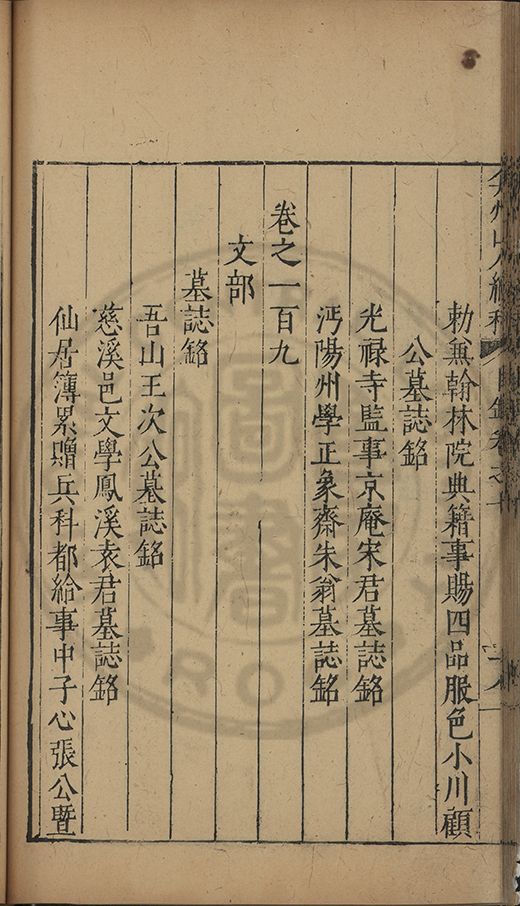 勅兼翰林院典籍事賜四品服色小川顧
公墓誌銘
光禄寺監事京庵宋君墓誌銘
沔陽州學正象齋朱翁墓誌銘
卷之一百九
文部
墓誌銘
吾山王次公墓誌銘
慈溪邑文學鳳溪袁君墓誌銘
仙居簿累贈兵科都給事中子心張公曁